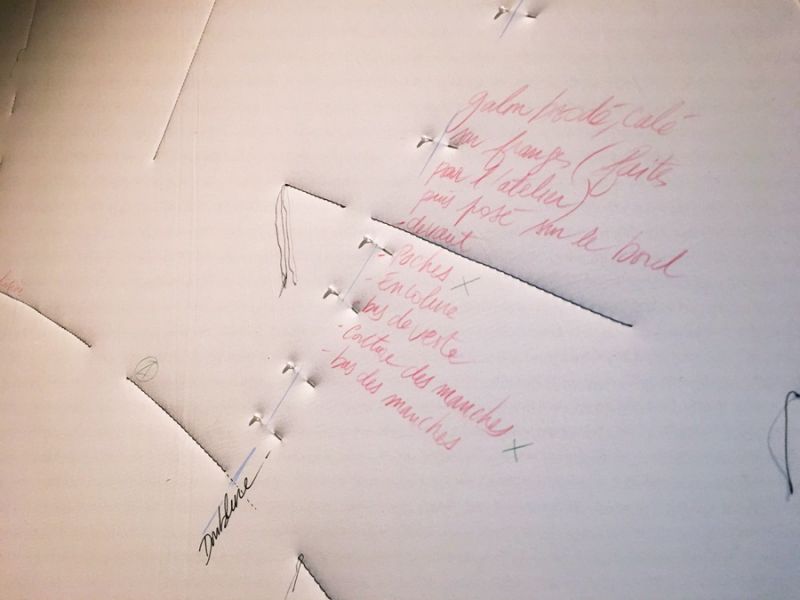 galon brodé, calé
sur franges (faites
par l'atelier)
puis posé sur le bord
- devant
- Poches x
- Encolure
bas de veste
- Couture des manches
- bas des manches x
A
Doublure